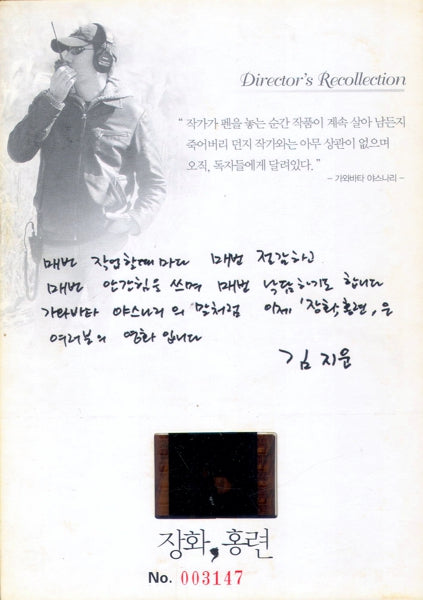 Director's Recollection
“ 작가가 펜을 놓는 순간 작품이 계속 살아 남든지
죽어버리 던지 작가와는 아무 상관이 없으며
오직, 독자들에게 달려있다. ”
– 가와바타 야스나리 –
매번 작업할때 마다 매번 절감하고
매번 안간힘을 쓰며 매번 낙담하기도 합니다
가와바타 야스나리의 말처럼 이제 '장화,홍련'은
여러분의 영화입니다
김지운
장화, 홍련
No. 003147